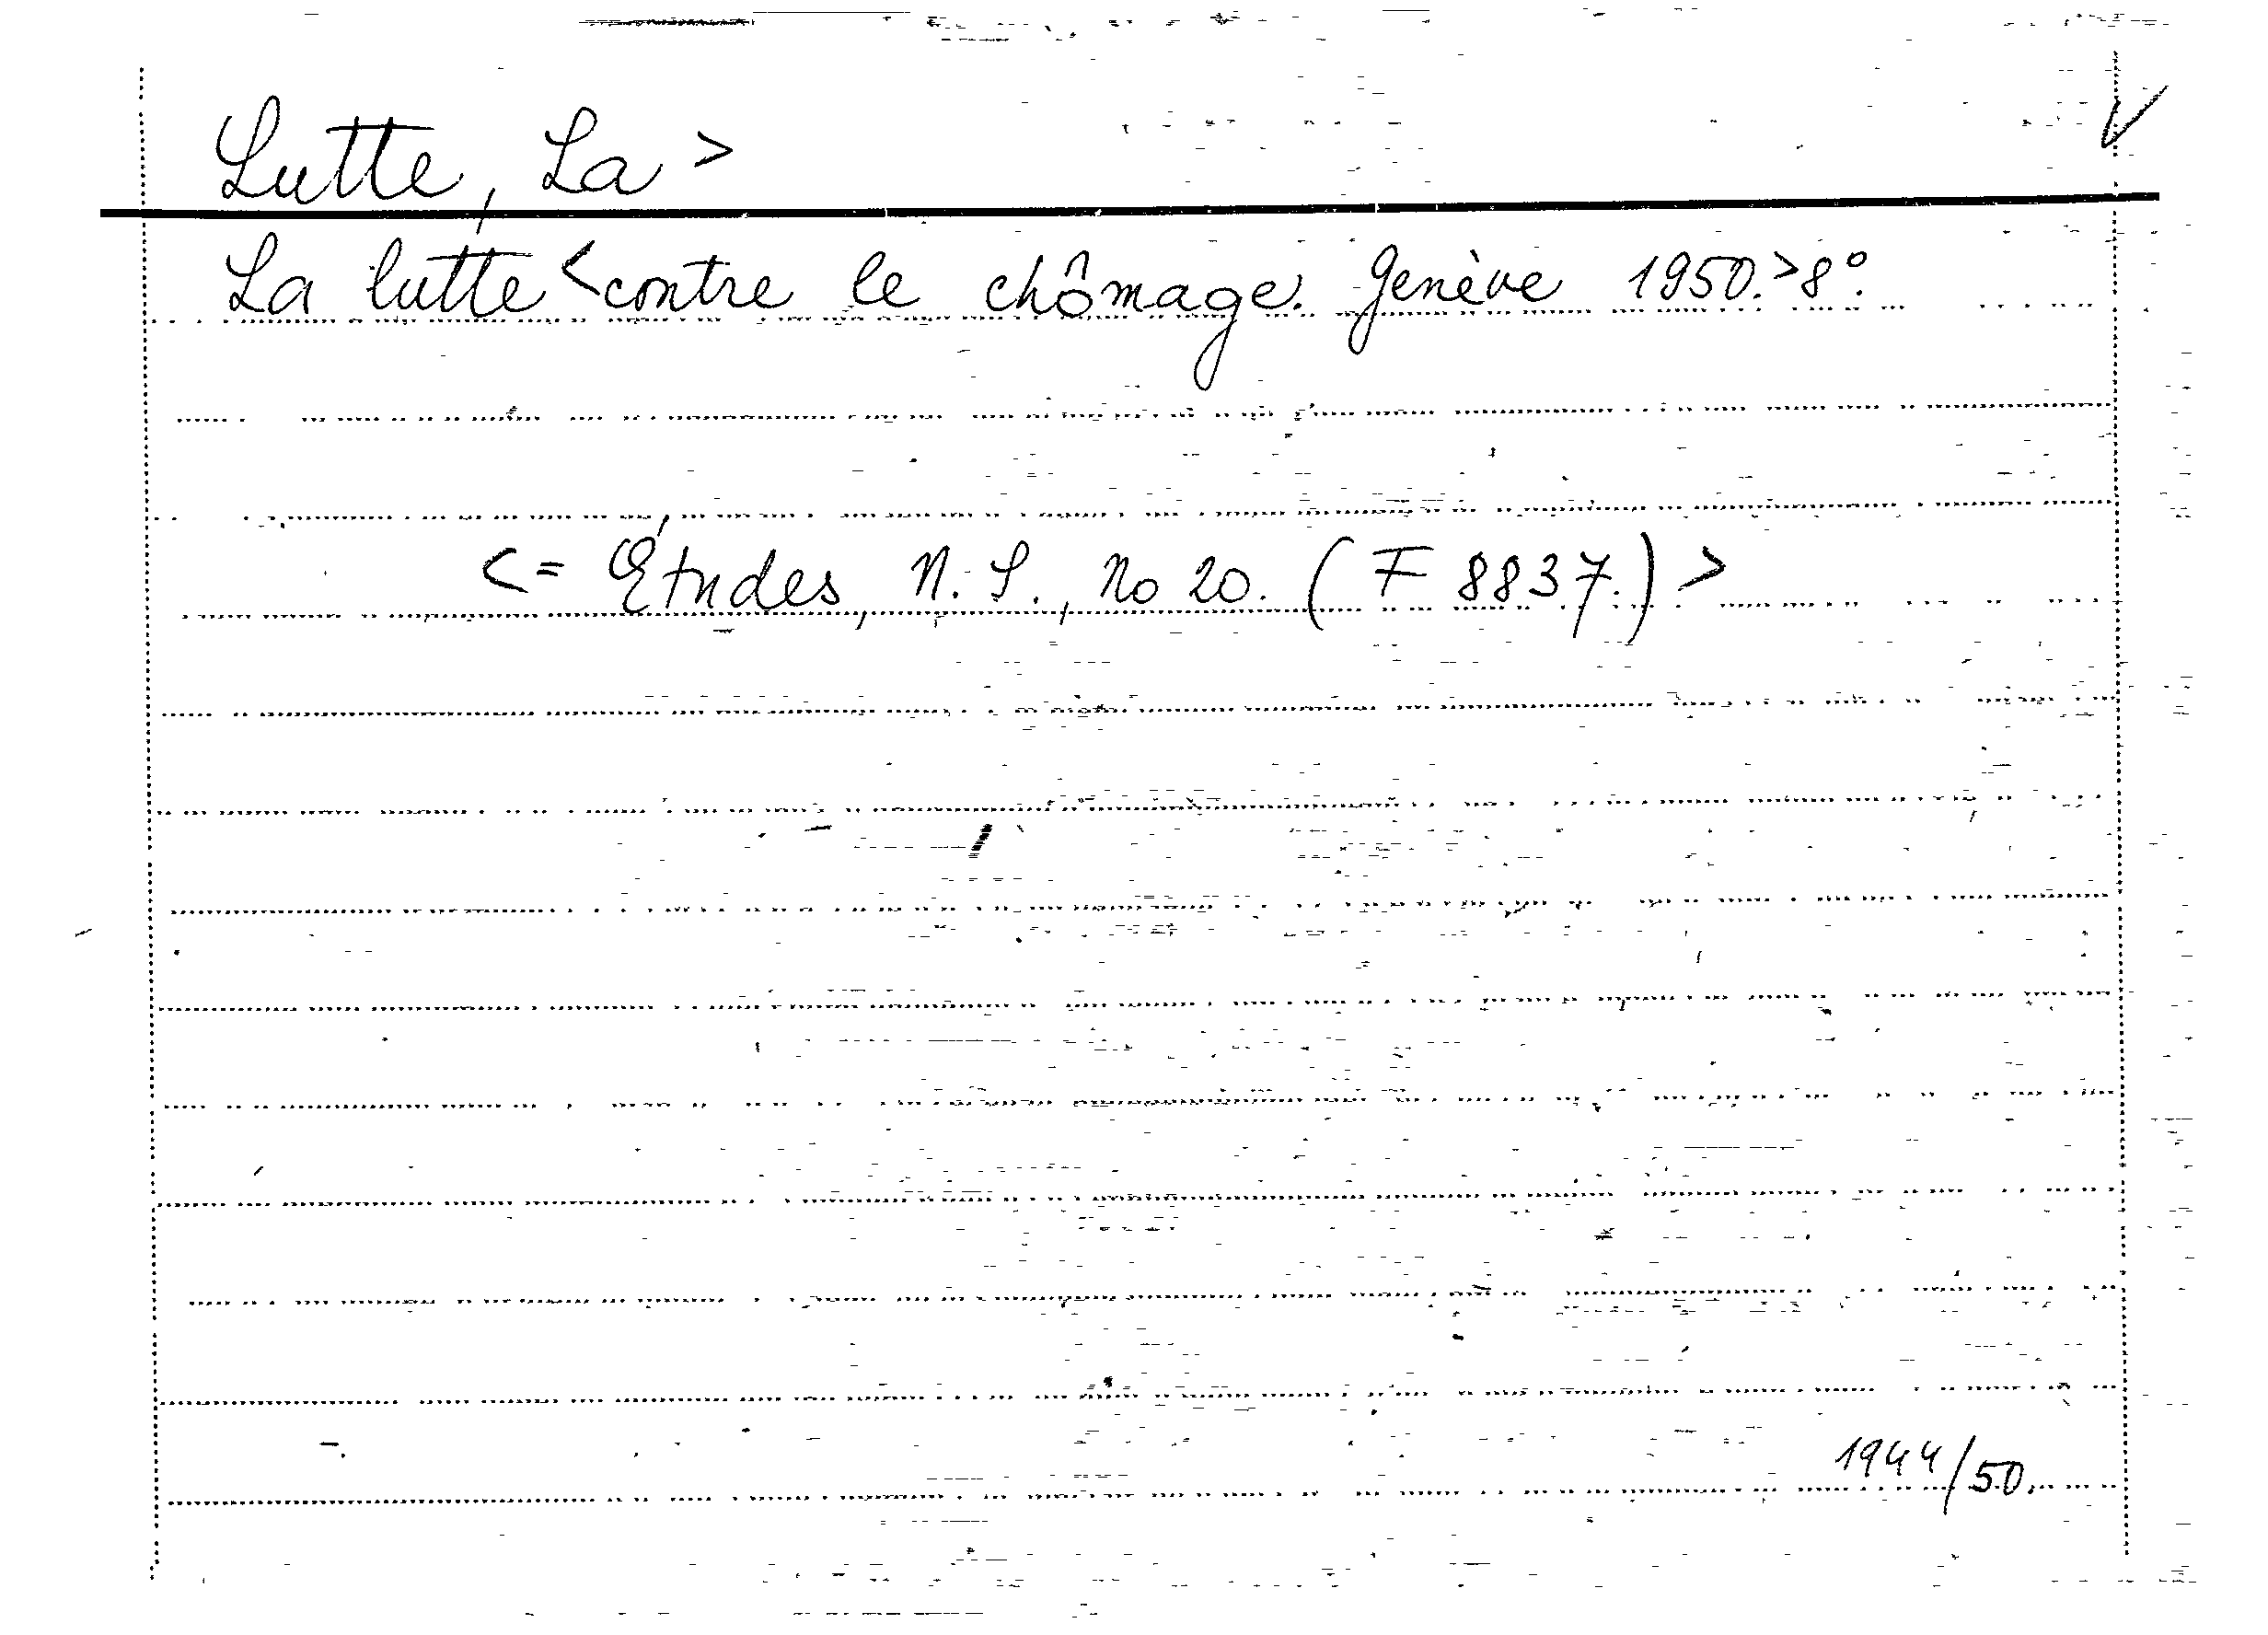 Lutte, La >
La lutte < contre le chômage. Genève 1950. > 8°.
<= Études, N.S., No 20. (F 8837.) >
1944/50.